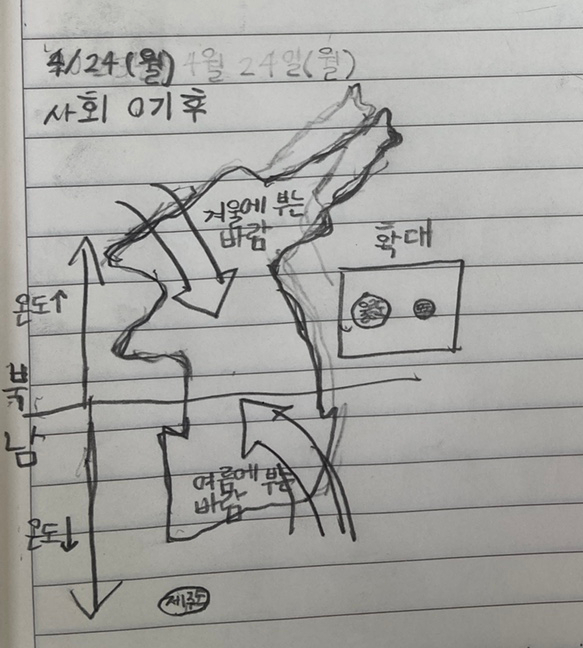 4/24(월) 4월 24일(월)
사회 0기후
겨울에 부는
바람
확대
울릉도
온도↑
북
남
여름에 부는
바람
온도↓
제주도